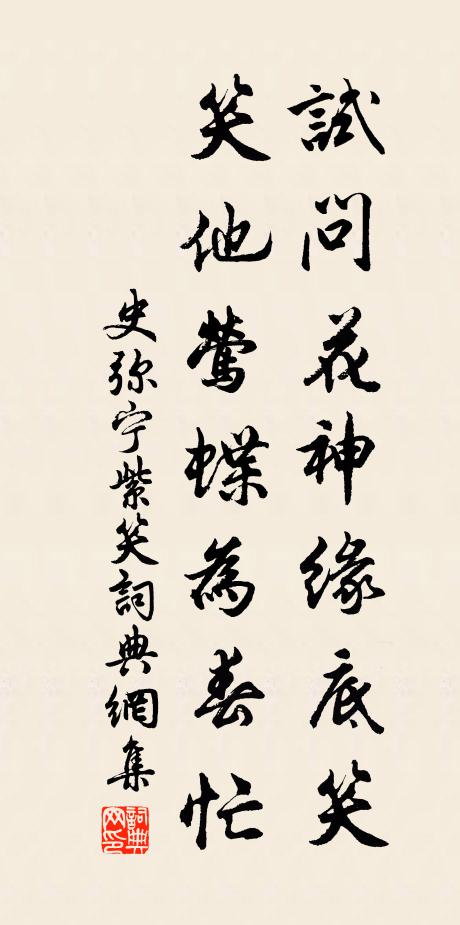 試問花神緣底笑
笑他鶯蝶為春忙
史弥宁紫笑詞典網集
詞典網印